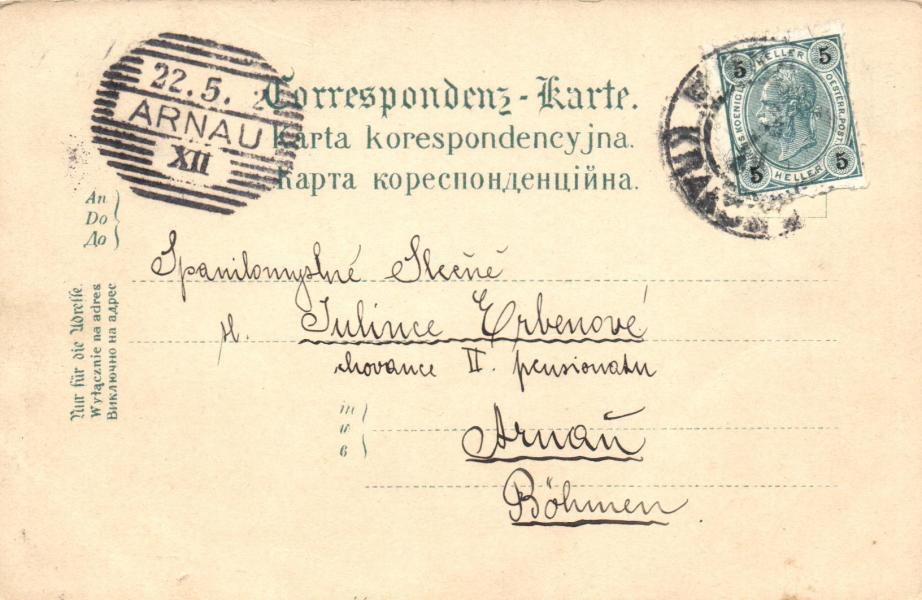 22.5.
ARNAU
XII
Correspondenz-Karte.
Karta korespondencyjna.
Карта кореспонденційна.
5 HELLER 5
5 HELLER 5
An
Do
До
Nur für die Adresse.
Wyłącznie na adres
Виключно на адрес
Spanilomyslné Slečně
sl. Julince Erbenové
chovance II. pensionatu
in
w
в
Arnaŭ
Böhmen